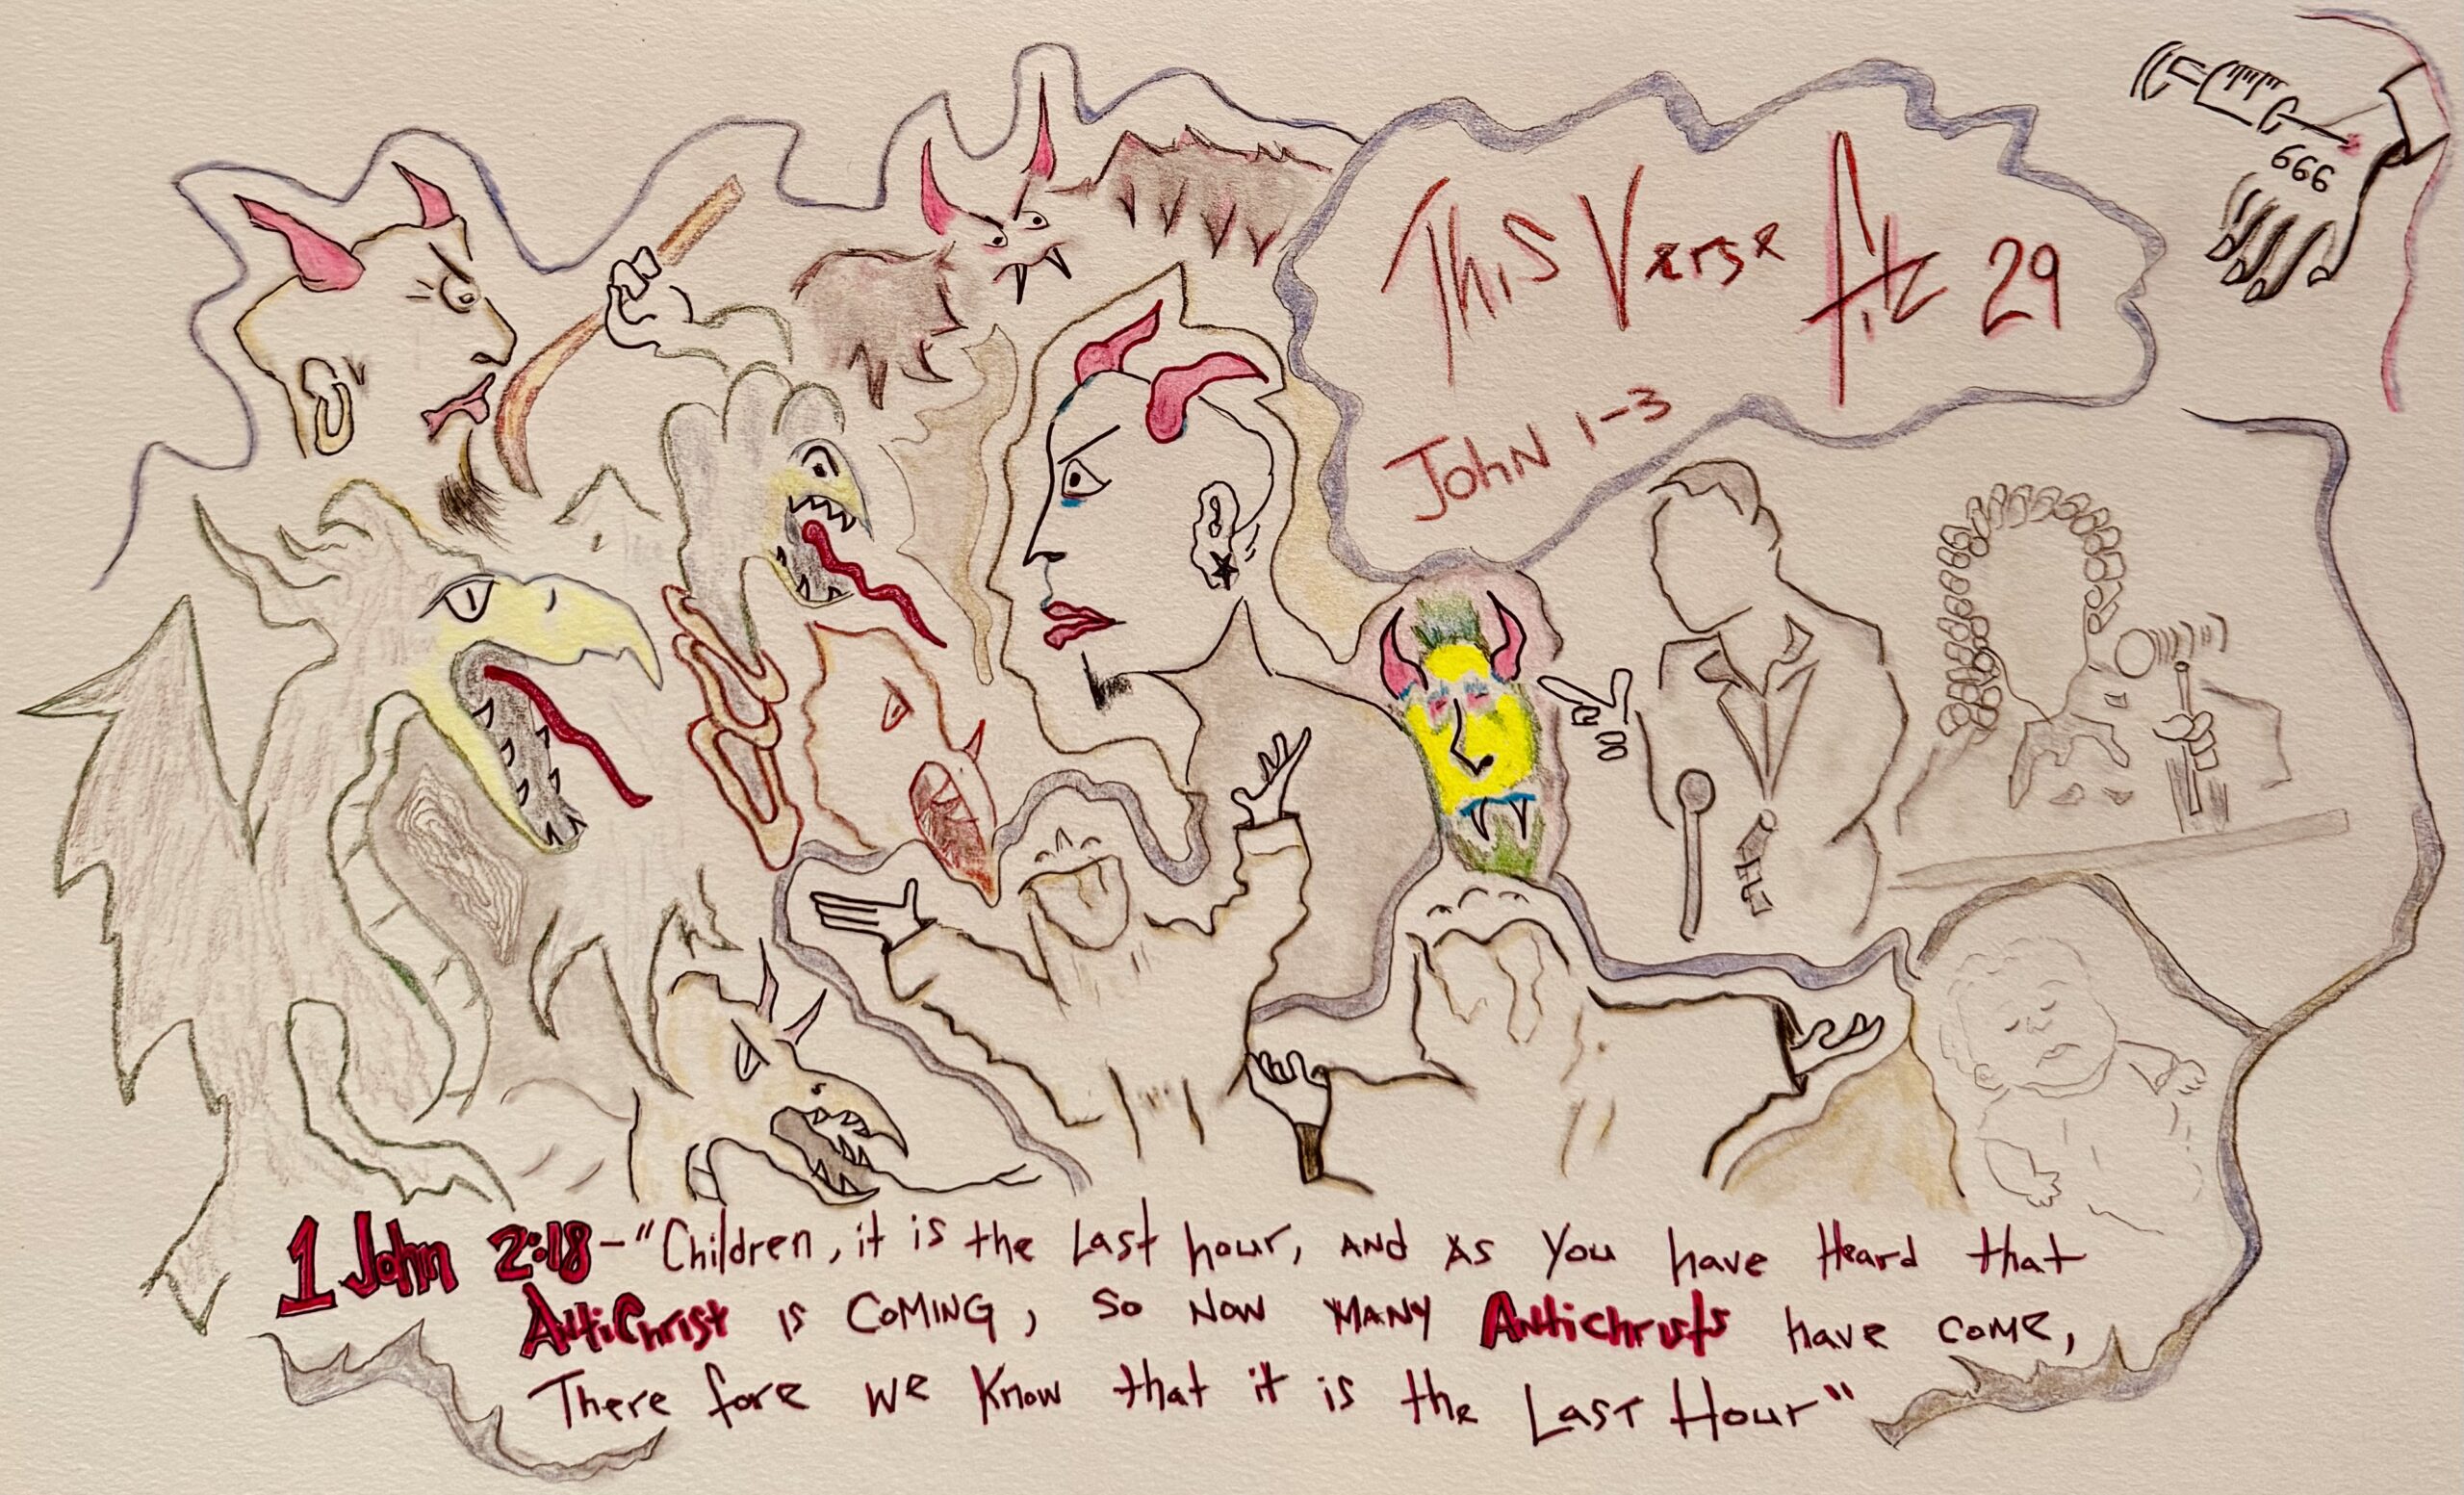 666
This Verse fitz 29
John 1-3
1 John 2:18 - "Children, it is the Last hour, AND AS You have Heard that
AntiChrist is COMING, So NOW MANY Antichrists have come,
There fore we Know that it is the Last Hour"